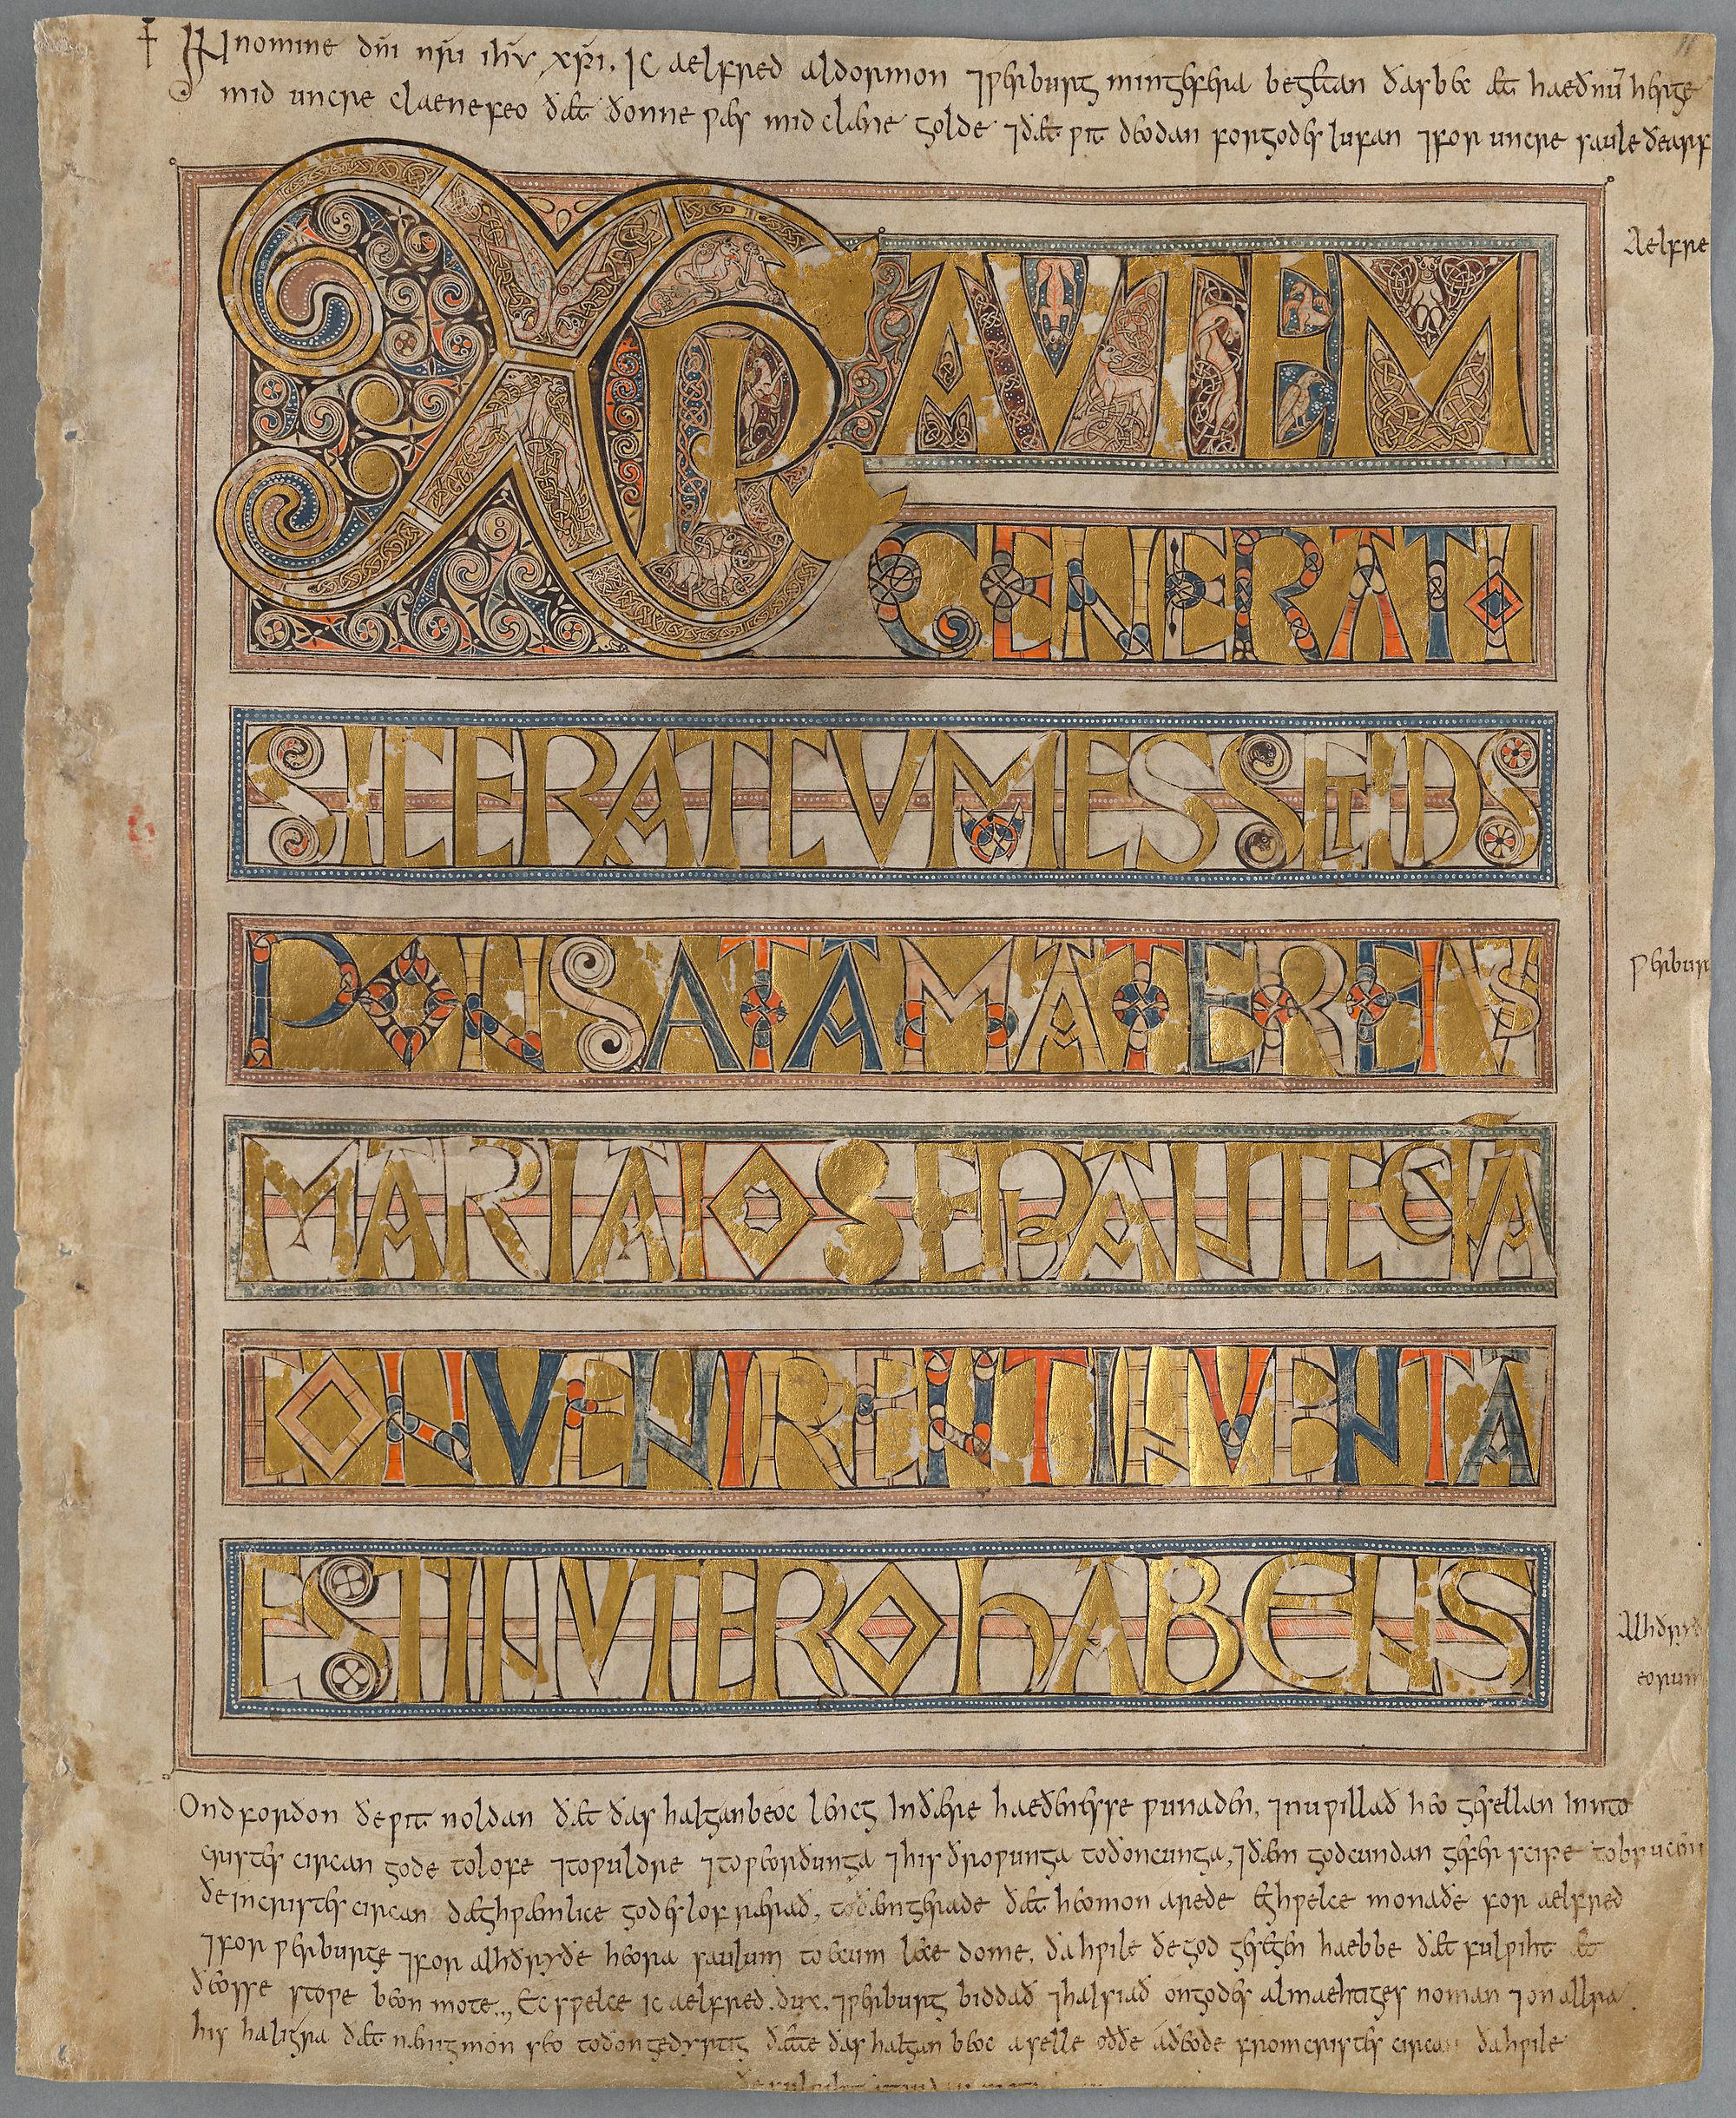 ✝ IN nomine dñi nr̃i ihũ xp̃i. Ic aelfred aldormon ⁊ ƿerburg min gefera begetan ðas bec æt haeðnũ herge
mid uncre claene feo ðæt ðonne ƿæs mid clæne golde ⁊ ðæt ƿit deodan for godes lufan ⁊ for uncre saule ðearf
Aelfre
XP̃I AUTEM
GENERATI
SIC ERAT CUM ESSET DIS
PONSATA MATER EIUS
MARIA IOSEP ANTEQUA
CONVENIRENT INVENTA
EST IN UTERO hABENS
ƿerbur
Alhðryð
eorum
Ond forðon ðe ƿit noldan ðæt ðas halgan beoc lencg In ðære haeðenesse ƿunaden, ⁊ nu ƿillað heo gesellan Inn to
cristes circan gode to lofe ⁊ to ƿuldre ⁊ to ƿeorðunga ⁊ his ðroƿunga to ðoncunga, ⁊ ðæm godcundan geferscipe to brucen
ðe in cristes circan dæghƿæmlice godes lof rærað, to ðæm gerade ðæt heo mon arede eghƿelce monaðe for aelfred
⁊ for ƿerburge ⁊ for alhðryðe heora saulum to ecum lecedome, ða hƿile ðe god gesegen haebbe ðæt fulƿiht æt
ðeosse stoƿe beon mote. Ec sƿelce ic aelfred. dux. ⁊ ƿerburg biddað ⁊ halsiað on godes almaehtiges noman ⁊ on allra
his haligra ðæt nænig mon seo to ðon gedyrstig ðætte ðas halgan beoc aselle oððe aðeode from cristes circan ða hƿile